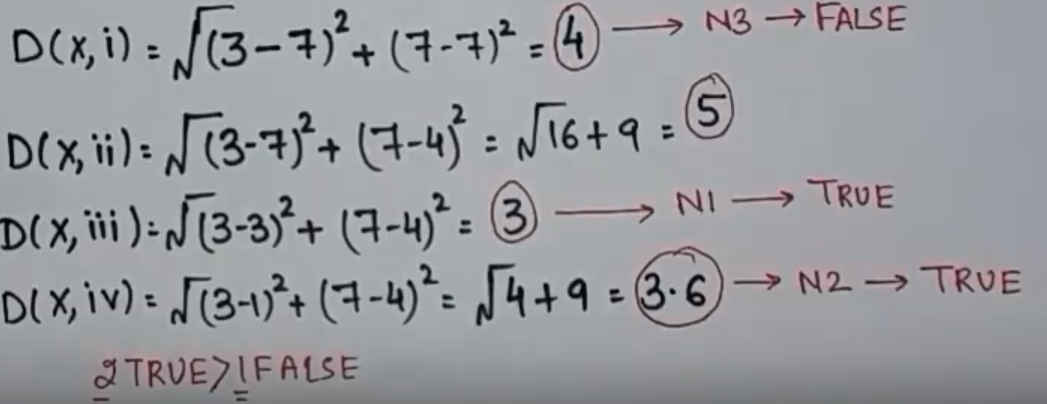 D(x,i) = √(3-7)² + (7-7)² = 4 → N3 → FALSE
D(x,ii) = √(3-7)² + (7-4)² = √16+9 = 5
D(x,iii) = √(3-3)² + (7-4)² = 3 → N1 → TRUE
D(x,iv) = √(3-1)² + (7-4)² = √4+9 = 3.6 → N2 → TRUE
2 TRUE > 1 FALSE